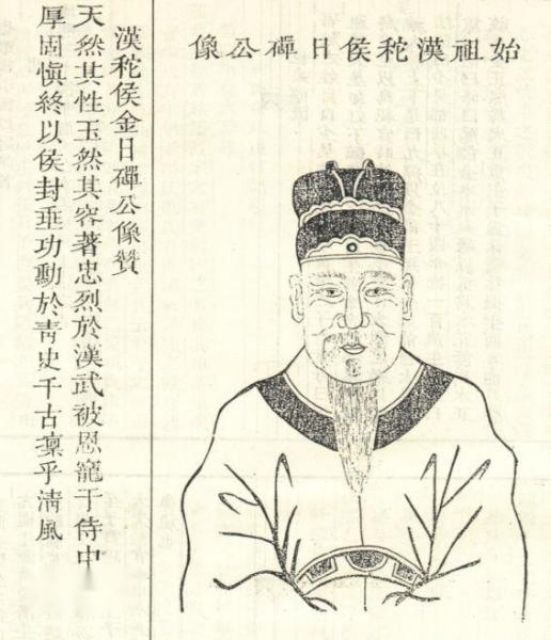 始祖漢秺侯日磾公像
漢秺侯金日磾公像贊
天然其性玉然其容著忠烈於漢武被恩寵于侍中
厚固慎終以侯封垂功勳於青史千古稟乎清風